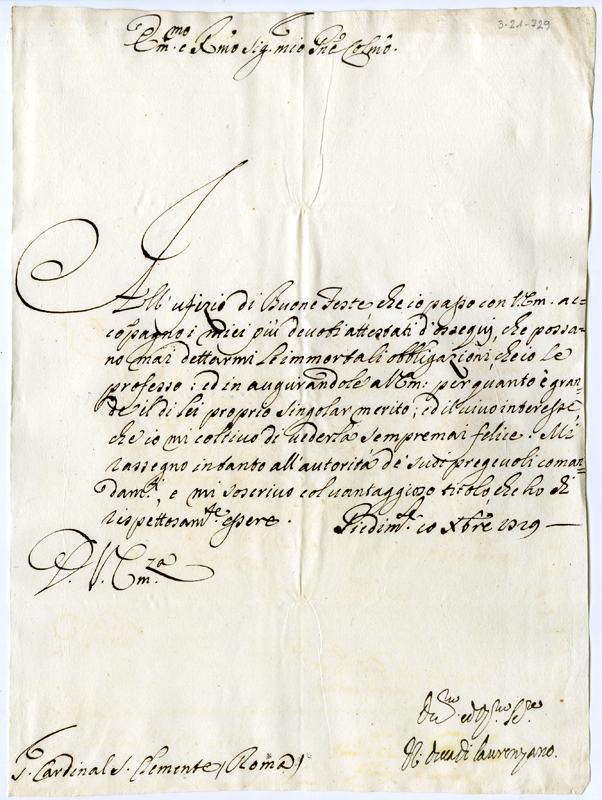 3-21-729
Em.mo e Rmo Sig. mio Pne Colmo.
All' ufizio di Buone Feste che io passo con V. Em. ac=
compagno i miei più devoti attestati d'ossequj, che possa=
no mai dettarmi le immortali obbligazioni che io le
professo: ed in augurandole a V. Em: per quanto è gran
de il di lei proprio singolar merito, ed il vivo interesse
che io mi coltivo di vederla sempremai felice. Mi
rassegno intanto all' autorità de' suoi pregevoli coman
dam.ti, e mi soscrivo col vantaggioso titolo, che ho di
rispettosam.te essere. Piedim.te 10 Xbre 1729
D. V. Em.za
ed Ob.mo Se.re
Il duca di Laurenzano.
S. Cardinal S. Clemente (Roma)